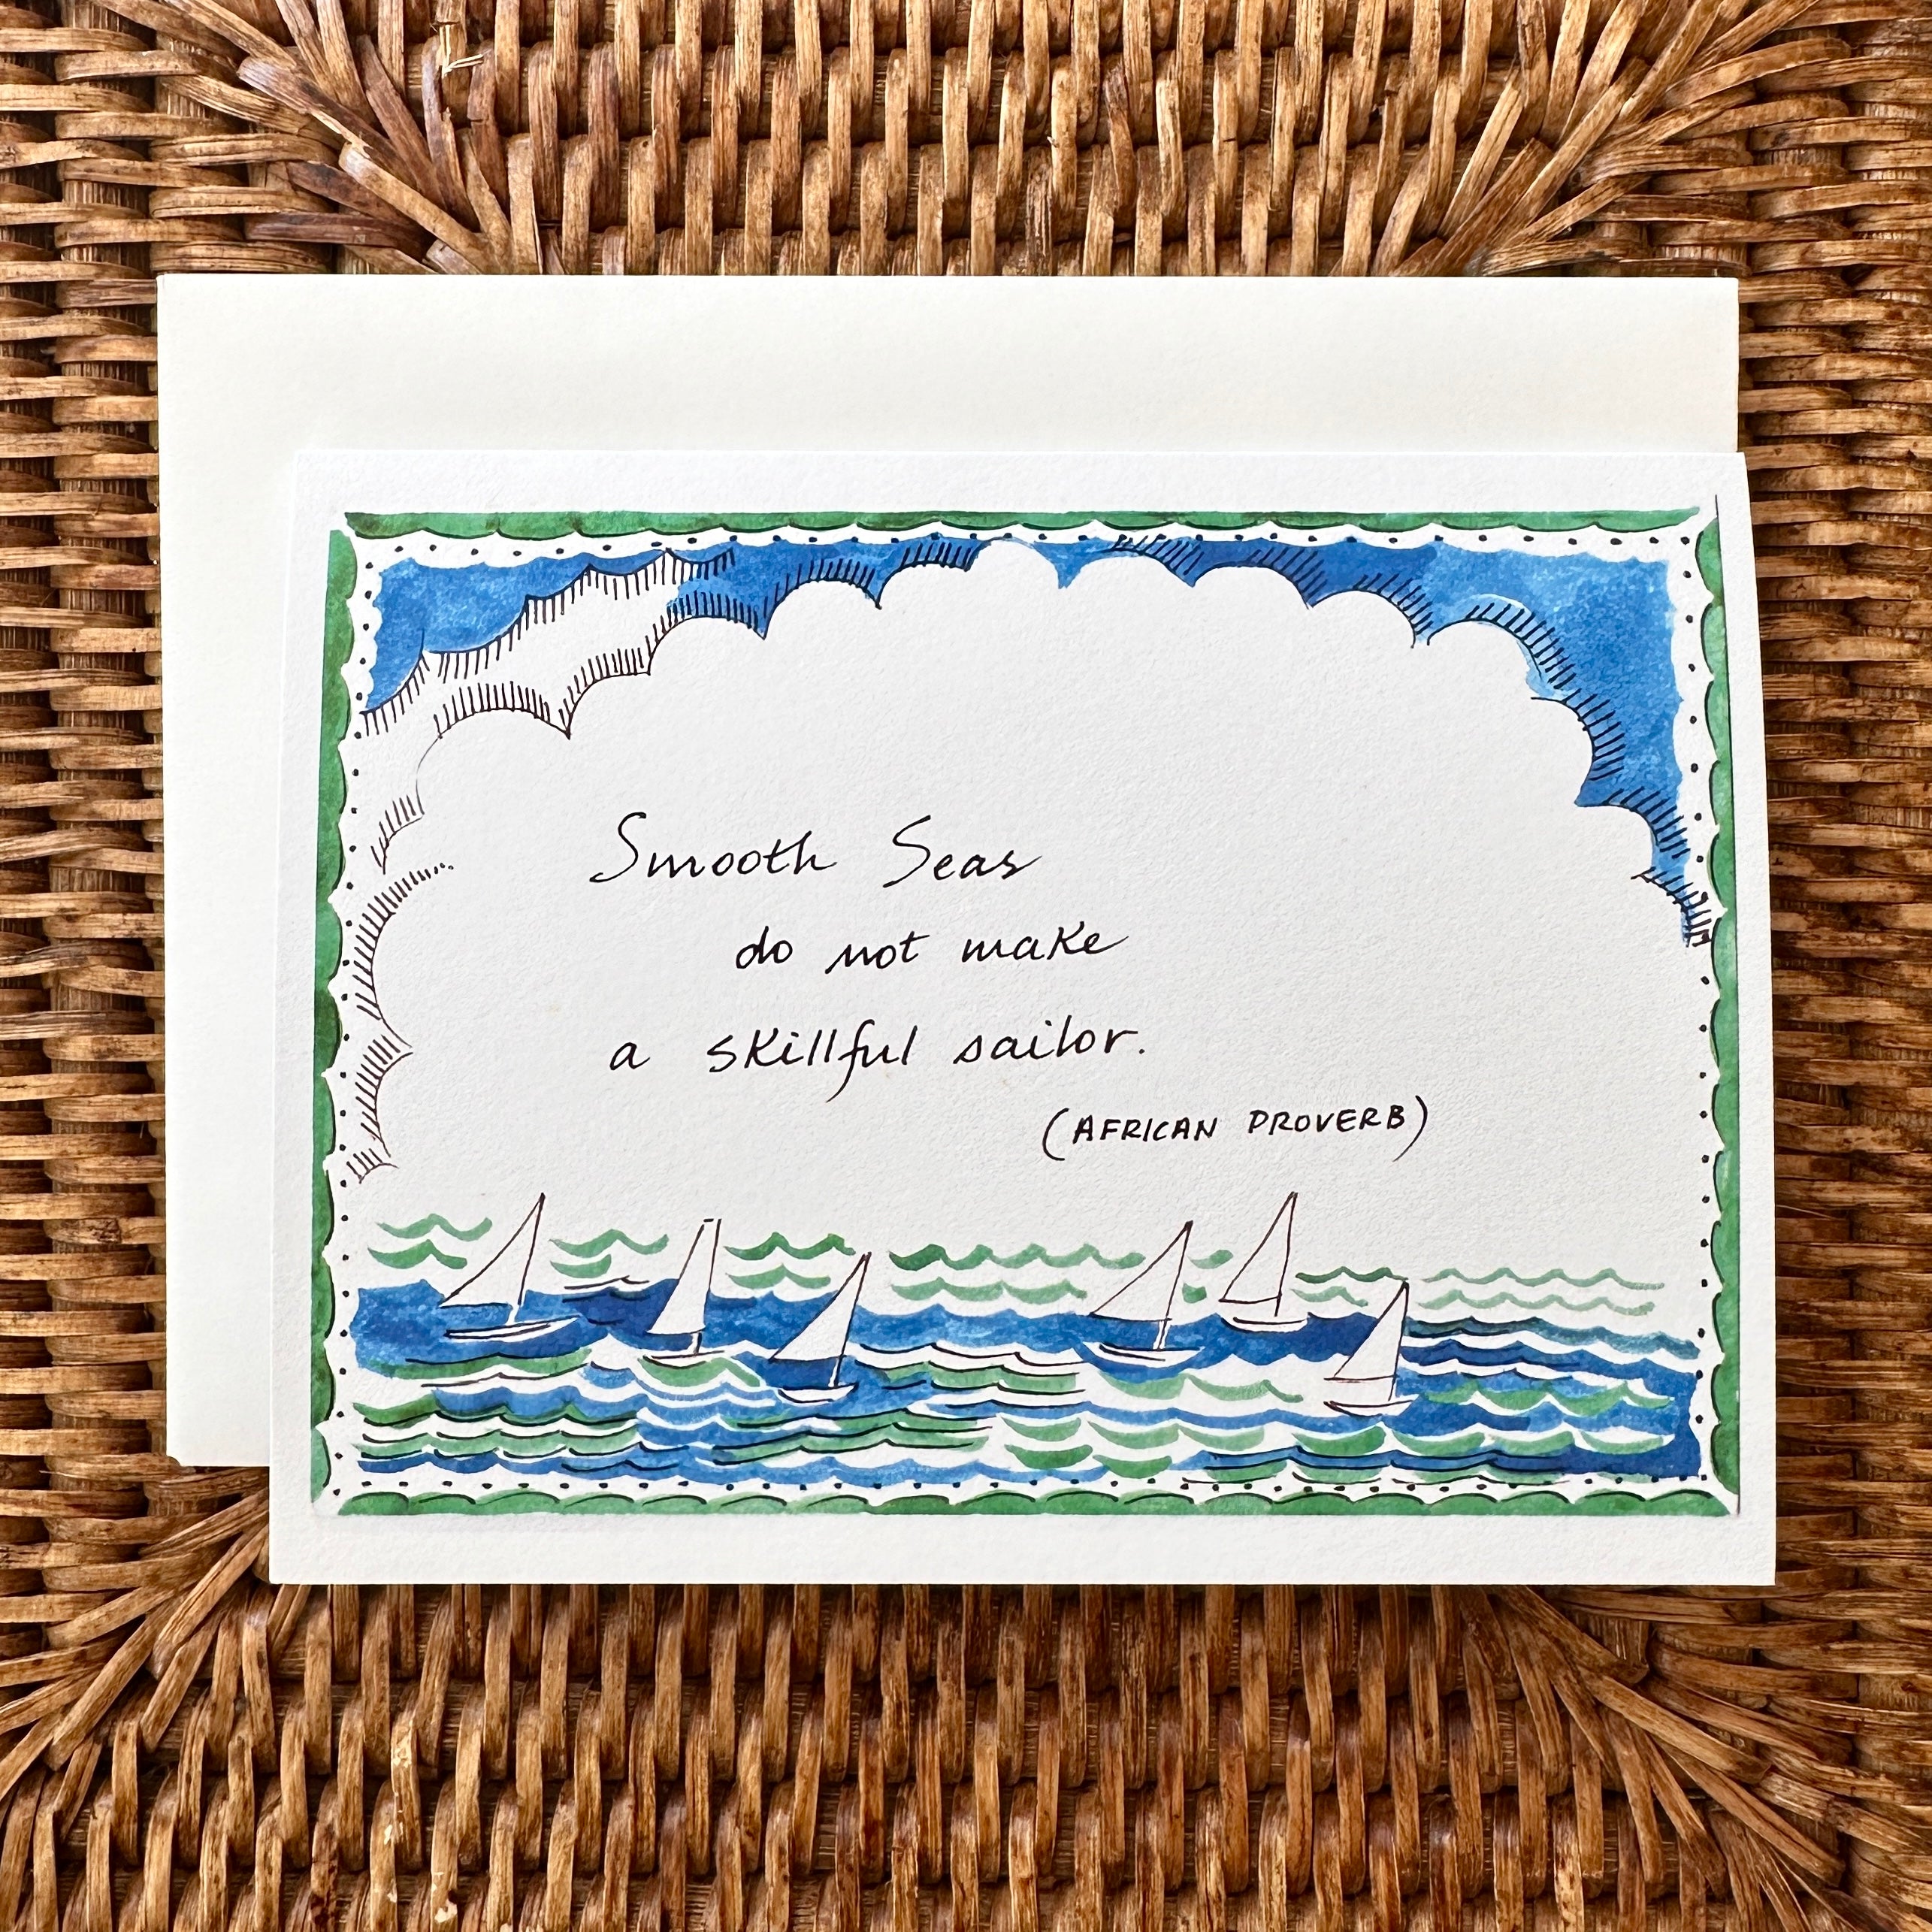 Smooth Seas
do not make
a skillful sailor.
(AFRICAN PROVERB)